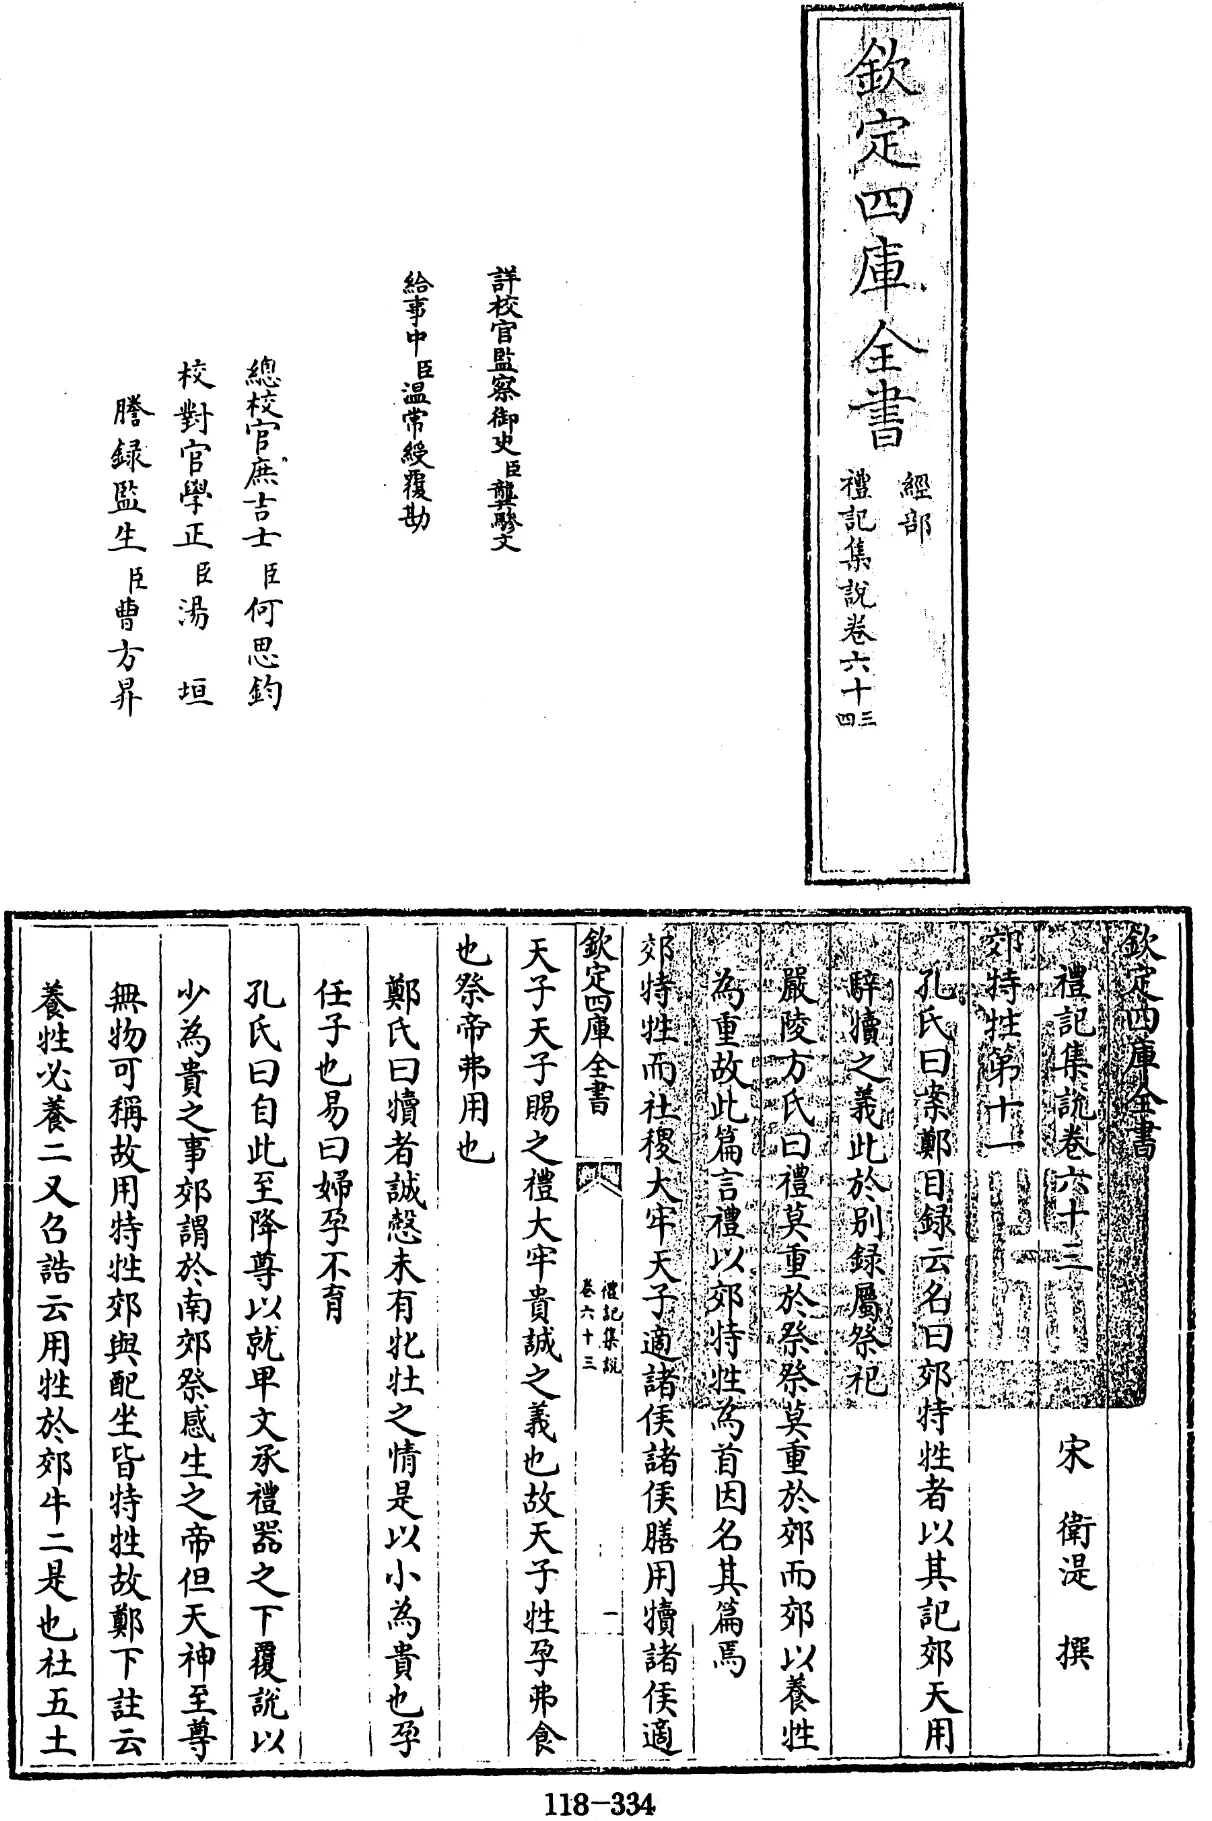 欽定四庫全書
經部
禮記集說卷六十三
四
詳校官監察御史臣龔驂文
給事中臣溫常綬覆勘
總校官庶吉士臣何思鈞
校對官學正臣湯垣
謄録監生臣曹方昇
欽定四庫全書
禮記集說卷六十三
宋 衛湜 撰
郊特牲第十一
孔氏曰案鄭目録云名曰郊特牲者以其記郊天用
騂犢之義此於別録屬祭祀
嚴陵方氏曰禮莫重於祭祭莫重於郊而郊以養牲
為重故此篇言禮以郊特牲為首因名其篇焉
郊特牲而社稷大牢天子適諸侯諸侯膳用犢諸侯適
欽定四庫全書
禮記集說
卷六十三
一
天子天子賜之禮大牢貴誠之義也故天子牲孕弗食
也祭帝弗用也
鄭氏曰犢者誠慤未有牝牡之情是以小為貴也孕
任子也易曰婦孕不育
孔氏曰自此至降尊以就卑文承禮器之下覆說以
少為貴之事郊謂於南郊祭感生之帝但天神至尊
無物可稱故用特牲郊與配坐皆特牲故鄭下註云
養牲必養二又召誥云用牲於郊牛二是也社五土
118-334